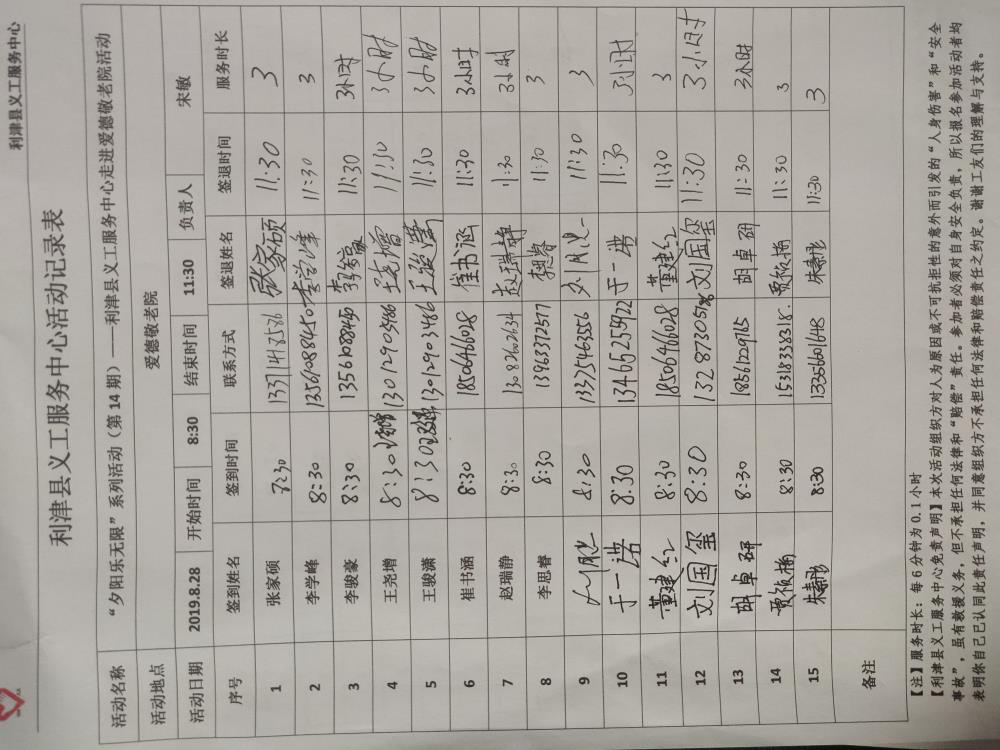 利津县义工服务中心
利津县义工服务中心活动记录表
活动名称 “夕阳乐无限”系列活动（第 14 期）——利津县义工服务中心走进爱德敬老院活动
活动地点 爱德敬老院
活动日期 2019.8.28 开始时间 8:30 结束时间 11:30 负责人 宋敏
序号 签到姓名 签到时间 联系方式 签退姓名 签退时间 服务时长
1 张家硕 8:30 张家硕 11:30 3
2 李学峰 8:30 13561088450 李学峰 11:30 3
3 李骏豪 8:30 13561088450 李骏豪 11:30 3小时
4 王尧增 8:30 13012903486 王尧增 11:30 3小时
5 王骏潇 8:30 13012903486 王骏潇 11:30 3小时
6 崔书涵 8:30 18506466028 崔书涵 11:30 3小时
7 赵瑞静 8:30 13082602634 赵瑞静 11:30 3小时
8 李思睿 8:30 13963372577 11:30 3
9 8:30 13375463556 11:30 3
10 于一诺 8:30 13465259922 于一诺 11:30 3小时
11 董建红 8:30 18506466028 董建红 11:30 3
12 刘国玺 8:30 13287305198 刘国玺 11:30 3小时
13 胡卓研 8:30 18561229765 胡卓研 11:30 3小时
14 8:30 15318338318 11:30 3
15 8:30 13356601648 11:30 3
备注
【注】服务时长：每 6 分钟为 0.1 小时
【利津县义工服务中心免责声明】本次活动组织方对人为原因或不可抗拒性的意外而引发的“人身伤害”和“安全
事故”，虽有救援义务，但不承担任何法律和“赔偿”责任。参加者必须对自身安全负责，所以报名参加活动者均
表明你自己已认同此责任声明，并同意组织方不承担任何法律和赔偿责任之约定。谢谢工友们的理解与支持。